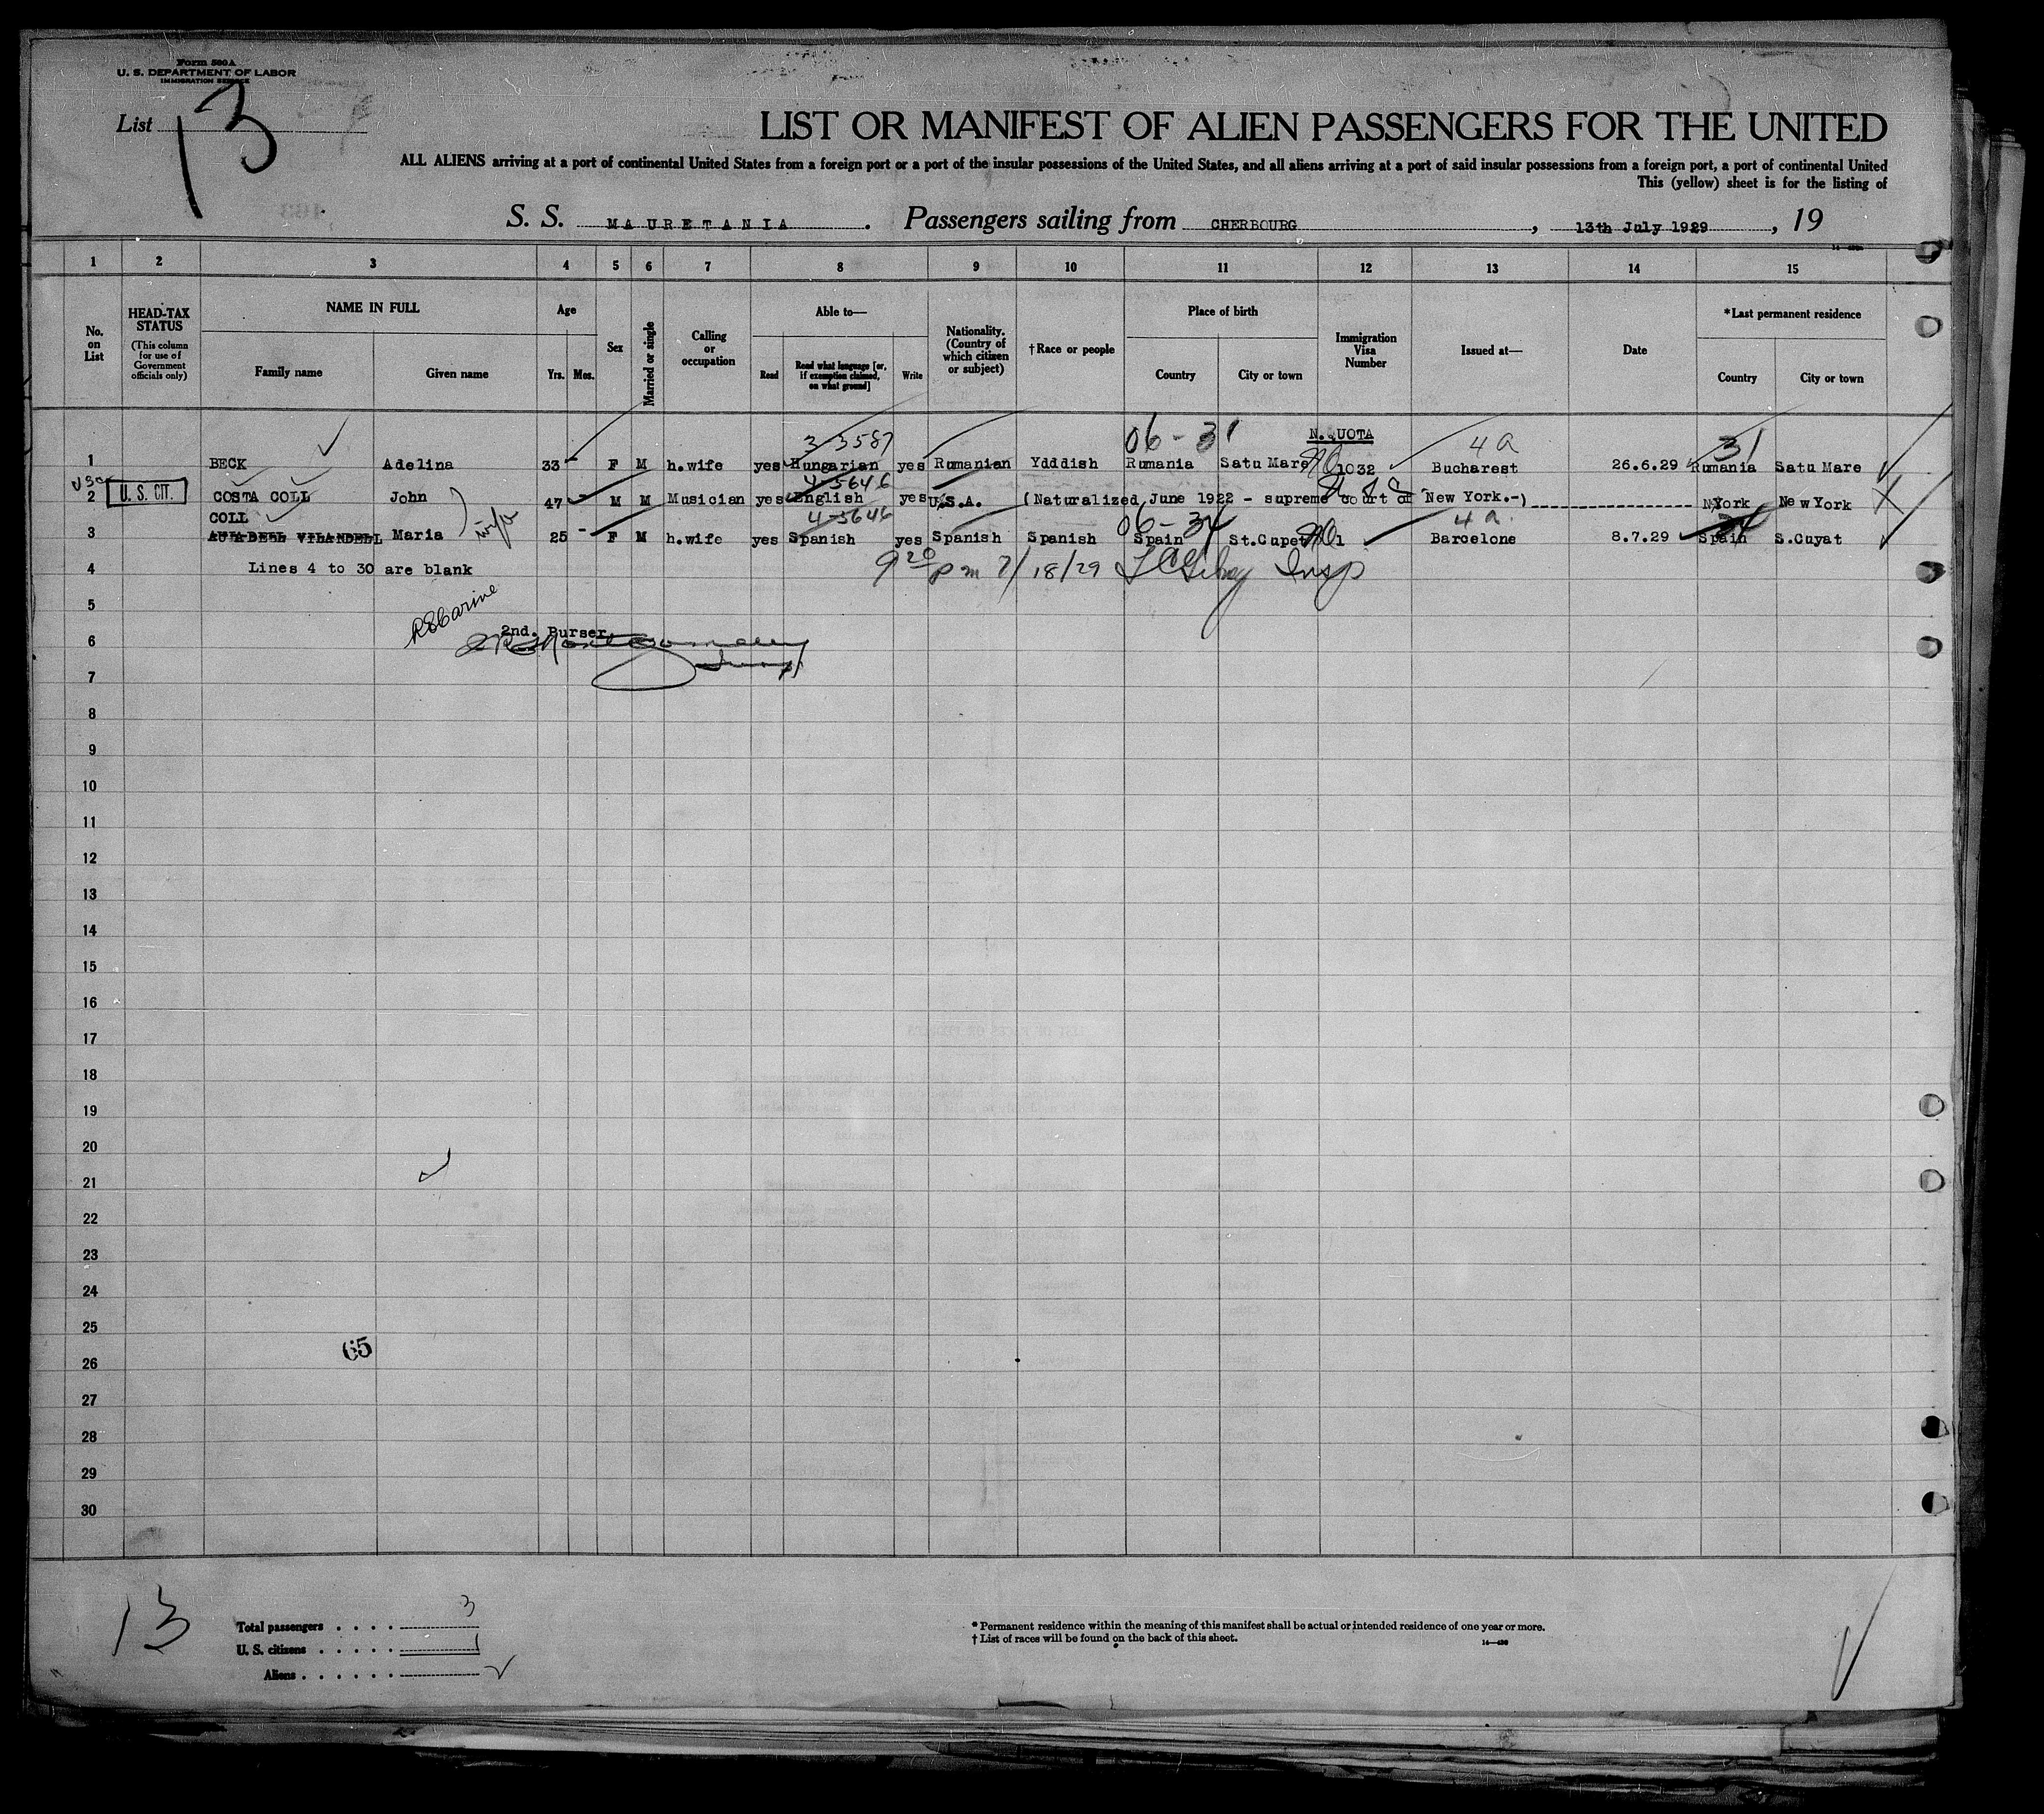 Form 500 A
U. S. DEPARTMENT OF LABOR
IMMIGRATION SERVICE
List 13
LIST OR MANIFEST OF ALIEN PASSENGERS FOR THE UNITED
ALL ALIENS arriving at a port of continental United States from a foreign port or a port of the insular possessions of the United States, and all aliens arriving at a port of said insular possessions from a foreign port, a port of continental United
This (yellow) sheet is for the listing of
S. S. MAURETANIA. Passengers sailing from CHERBOURG, 13th July 1929, 19
1 2 3 4 5 6 7 8 9 10 11 12 13 14 15
No. on List
HEAD-TAX STATUS
(This column for use of Government officials only)
NAME IN FULL
Family name
Given name
Age
Yrs. Mos.
Sex
Married or single
Calling or occupation
Able to—
Read
Read what language [or, if exemption claimed, on what ground]
Write
Nationality. (Country of which citizen or subject)
†Race or people
Place of birth
Country
City or town
Immigration Visa Number
Issued at—
Date
*Last permanent residence
Country
City or town
3-3587 06-31 N.QUOTA 4a 31
1 BECK Adelina 33 - F M h.wife yes Hungarian yes Rumanian Ydddish Rumania Satu Mare 1032 Bucharest 26.6.29 Rumania Satu Mare
4-5646
usc
2 U. S. CIT. COSTA COLL John 47 - M M Musician yes English yes U.S.A. (Naturalized June 1922 - supreme court of New York.-) N.York New York
COLL 4-5646 06-34 4a
3 Maria 25 - F M h.wife yes Spanish yes Spanish Spanish Spain St.Cupet 1 Barcelone 8.7.29 Spain S.Cuyat
4 Lines 4 to 30 are blank 9 20 pm 7/18/29 Insp
5
6 2nd. Purser
7
8
9
10
11
12
13
14
15
16
17
18
19
20
21
22
23
24
25
65
26
27
28
29
30
13
Total passengers . . . . 3
U. S. citizens . . . . . 1
Aliens . . . . . .
* Permanent residence within the meaning of this manifest shall be actual or intended residence of one year or more.
† List of races will be found on the back of this sheet.